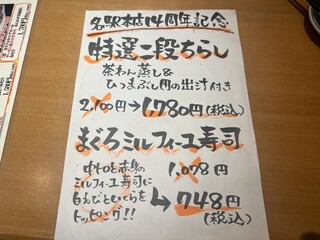 名駅本店14周年記念
特選二段ちらし
茶わん蒸し&
ひつまぶし用の出汁付き
2,100円→1,780円(税込)
まぐろミルフィーユ寿司
中トロと赤身の
ミルフィーユ寿司に
白えびといくらを
トッピング!!
1,078円
→748円
(税込)